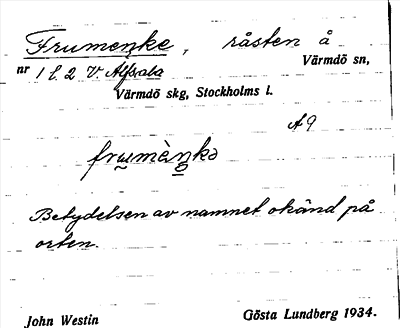 Frumenke, råsten å
Värmdö sn,
nr 1 l. 2 V. Alfsala
Värmdö skg, Stockholms l.
A9
frumàŋkə
Betydelsen av namnet okänd på
orten.
John Westin Gösta Lundberg 1934.